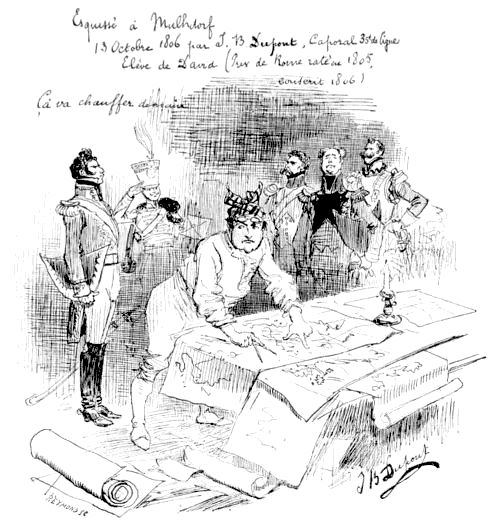 Esquissé à Mulhdorf
13 Octobre 1806 par J. B Dupont, Caporal 35e de ligne
Elève de David (Prix de Rome raté en 1805,
conscrit 1806)
Çà va chauffer
J B Dupont